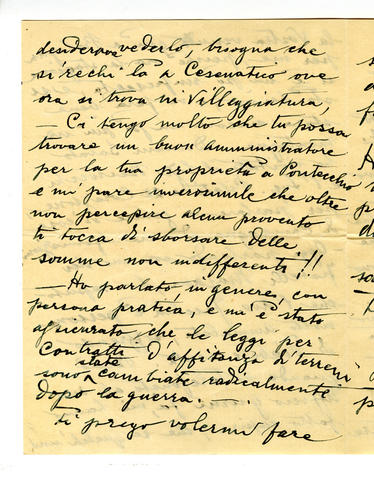 desiderare vederlo, bisogna che
si rechi là a Cesenatico ove
ora si trova in Villeggiatura,
— Ci tengo molto che tu possa
trovare un buon amministratore
per la tua proprietà a Pontecchio
e mi pare inverosimile che oltre
non percepire alcun provento
ti tocca di sborsare delle
somme non indifferenti!!
— Ho parlato in genere, con
persona pratica, e mi è stato
assicurato che le leggi per
Contratti d'affitanza di terreni
sono state cambiate radicalmente
dopo la guerra. —.
ti prego volermi fare